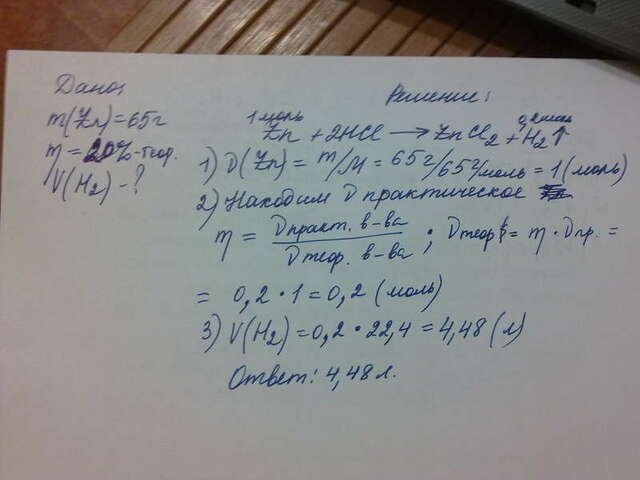 Дано:
Решение:
m(Zn)=65г
η=20%-теор.
V(H₂)-?
1 моль
Zn + 2HCl → ZnCl₂ + H₂↑
1) ν(Zn) = m/M = 65г/65г/моль = 1(моль)
2) Находим ν практическое
η = ν практ. в-ва / ν теор. в-ва ; ν теор = η · ν пр. =
= 0,2 · 1 = 0,2 (моль)
3) V(H₂) = 0,2 · 22,4 = 4,48 (л)
Ответ: 4,48 л.